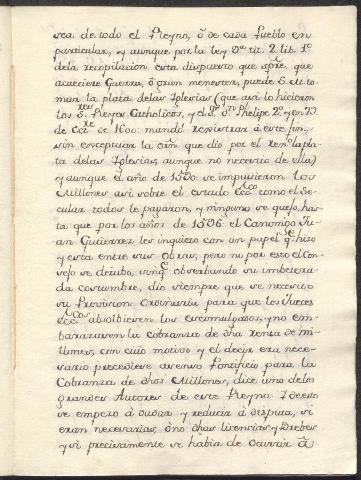 sea de todo el Reyno, ó de cada Pueblo en
particular, y aunque por la ley 9ª tit. 2. lib. 1º
de la recopilacion esta dispuesto que spre. que
acaeciere Guerra, ó gran menester, puede S. M. to
mar la plata delas Iglesias (que asi lo hicieron
los S.res Reyes Catholicos, y el S.or D.n Phelipe 2º, y en
de de 1600. mandó rexistrar á este fin,
sin exceptuar la que dio por el la pla
ta delas Iglesias, aunque no necesitó de ella)
y aunque el año de 1590 se impusieron los
Millones asi sobre el estado Ecc.co como el Se
cular todos le pagaron, y ninguno se quejo, has
ta que por los años de 1596. el Canonigo Ju
an Gutierrez les inquietó con un papel q.e hizo
y esta entre sus Obras, pero no por eso el Con
sejo se detubo, sinq.e observando su imbetera
da costumbre, dio siempre que se necesitó
su Provision Ordinaria para que los Jueces
Ecc.cos absolbiesen los excomulgados, y no em
barazasen la cobranza de dha renta de mi
llones, con cuio motivo y el decir era nece-
sario precediese asenso Pontificio para la
Cobranza de dhos Millones, dice uno delos
grandes Autores de este Reyno
se empezo á dudar y reducir á disputa, si
eran necesarias, ó no dhas licencias y Brebes
y si precisamente se habia de ocurrir á